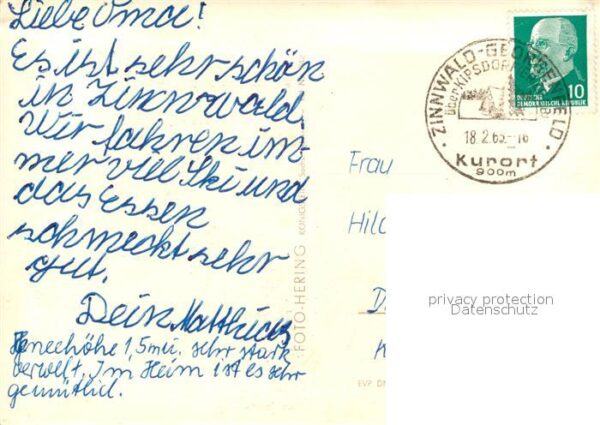 Liebe Oma!
Es ist sehr schön
in Zinnwald.
Wir fahren im-
mer viel Ski und
das Essen
schmeckt sehr
gut.
Dein Matthias
Schneehöhe 1,5 m, sehr stark
verweht. Im Heim ist es sehr
gemütlich.
FOTO-HERING
ZINNWALD-GEORGENFELD
über KIPSDORF
18.2.65.-16
Kurort
900m
DEUTSCHE
DEMOKRATISCHE REPUBLIK
10
Frau
Hild
D
K
privacy protection
Datenschutz